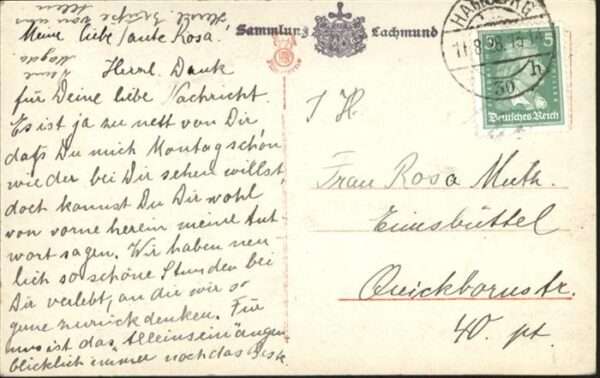 Herzl. Grüße von uns
allen
Deine
Magda.
Sammlung Lachmund
Meine liebe Tante Rosa!
Herzl. Dank
für Deine liebe Nachricht.
Es ist ja zu nett von Dir
daß Du mich Montag schon
wieder bei Dir sehen willst,
doch kannst Du Dir wohl
von vorne herein meine Ant-
wort sagen. Wir haben neu-
lich so schöne Stunden bei
Dir verlebt, an die wir so
gerne zurückdenken. Für
uns ist das Alleinsein augen-
blicklich immer noch das Beste.
HAMBURG
30 h
5
Deutsches Reich
I H.
Frau Rosa Muth.
Eimsbüttel
Quickbornstr.
40. pt.